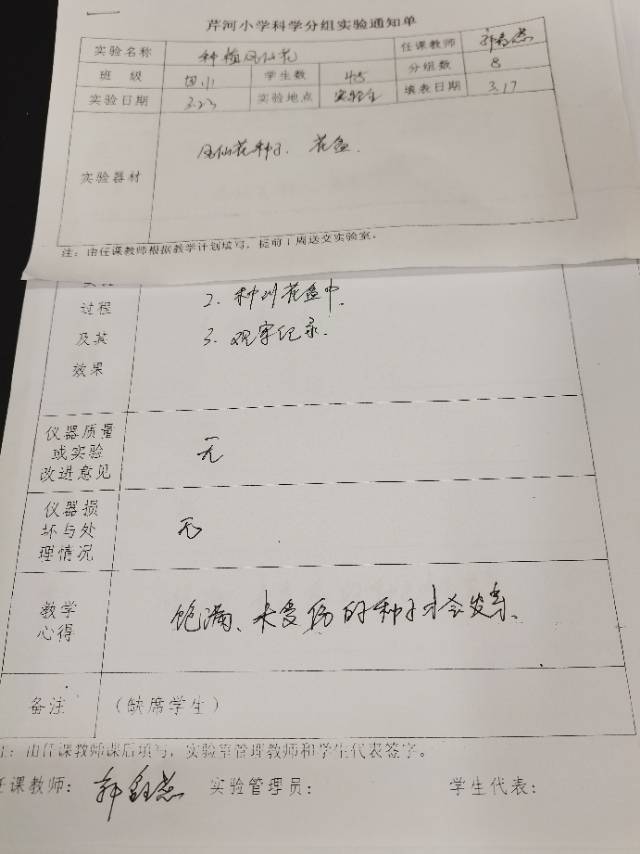 芹河小学科学分组实验通知单
实验名称 种植凤仙花 任课教师
班 级 四 学生数 45 分组数 8
实验日期 3.23 实验地点 实验室 填表日期 3.17
实验器材 凤仙花种子、花盆.
注:由任课教师根据教学计划填写,提前1周送交实验室。
过程 2. 种到花盆中.
及其 3. 观察记录.
效果
仪器质量
或实验 无
改进意见
仪器损
坏与处 无
理情况
教学
心得 饱满、未受伤的种子才会发芽、
备注 (缺席学生)
注:由任课教师课后填写,实验室管理教师和学生代表签字。
任课教师: 实验管理员: 学生代表: